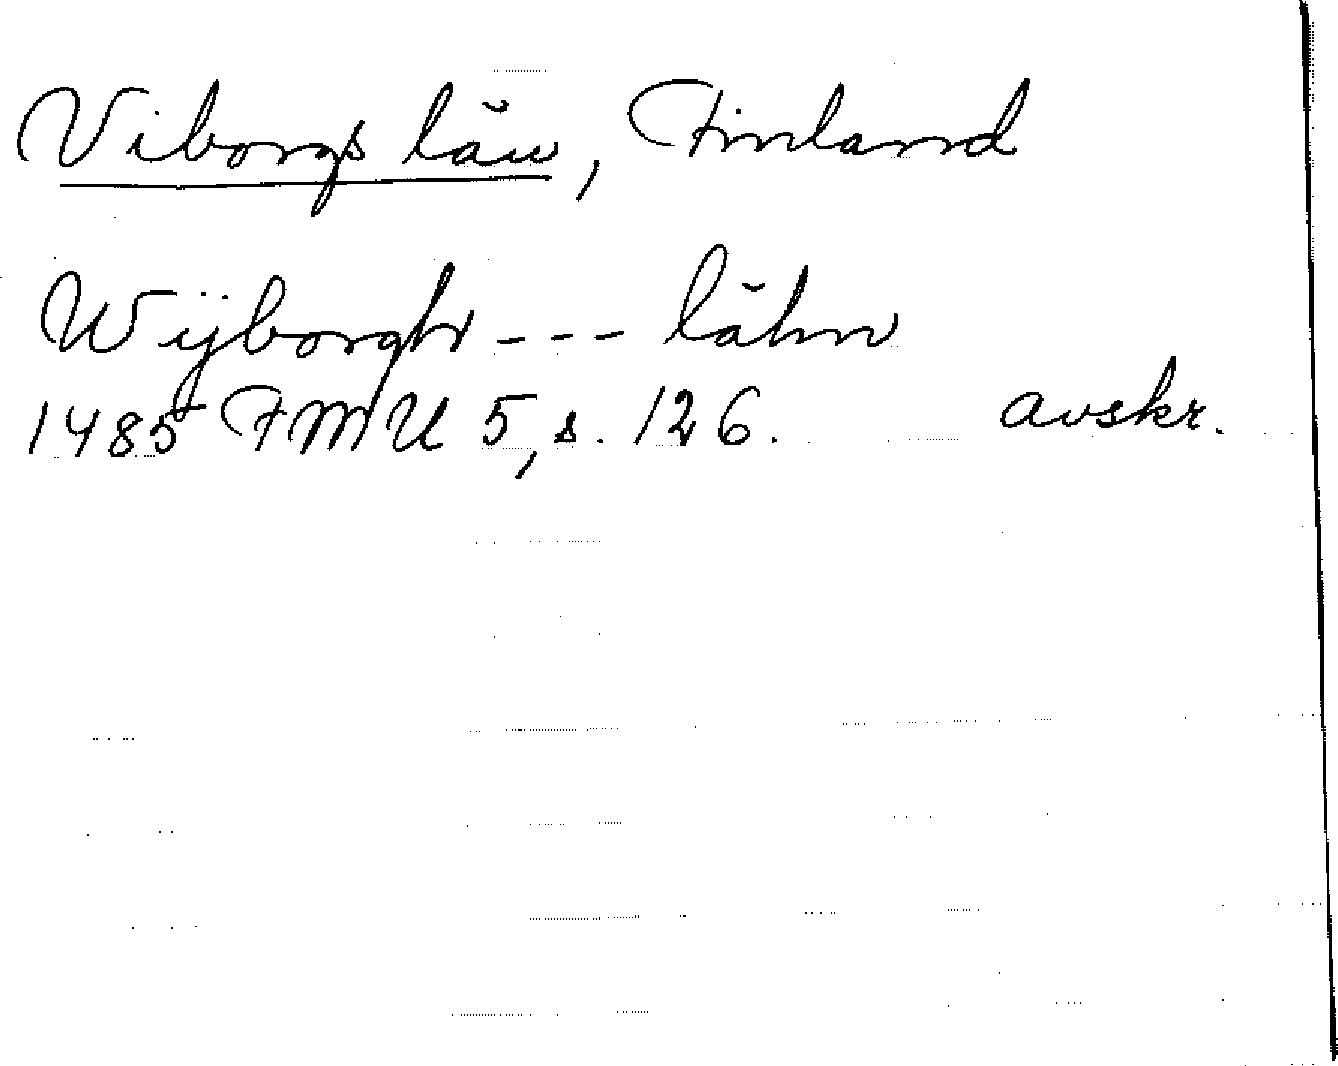 Viborgs län, Finland
Wÿborgh --- lähn
1485 FMU 5, s. 126. avskr.